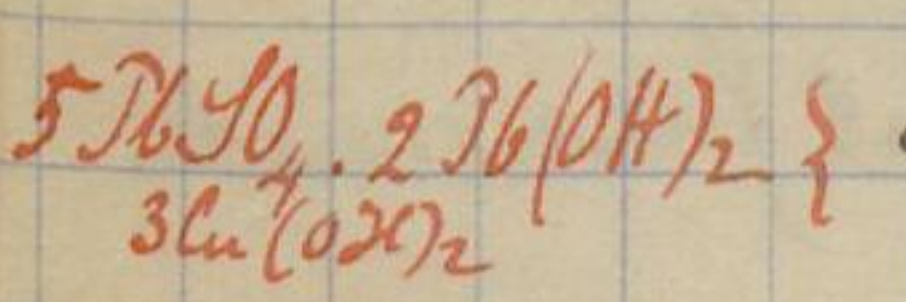 5 PbSO₄ . 2 Pb(OH)₂ }
3Cu(OH)₂